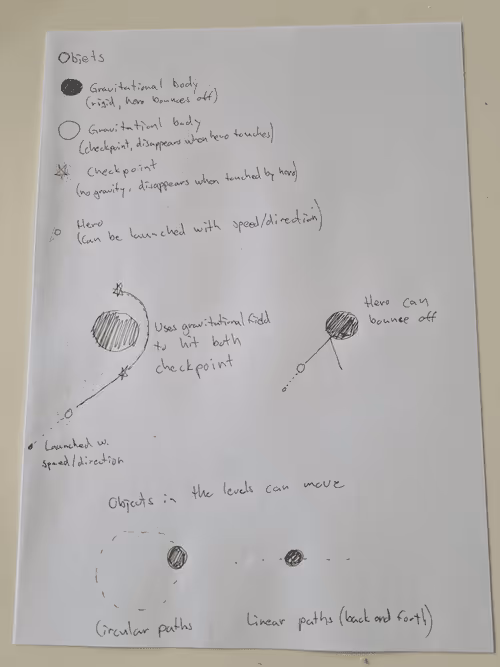 Objets
Gravitational body
(rigid, hero bounces off)
Gravitational body
(checkpoint, disappears when hero touches)
Checkpoint
(no gravity, disappears when touched by hero)
Hero
(Can be launched with speed/direction)
Uses gravitational field
to hit both
checkpoint
Hero can
bounce off
Launched w.
speed/direction
Objects in the levels can move
Circular paths
Linear paths (back and forth)